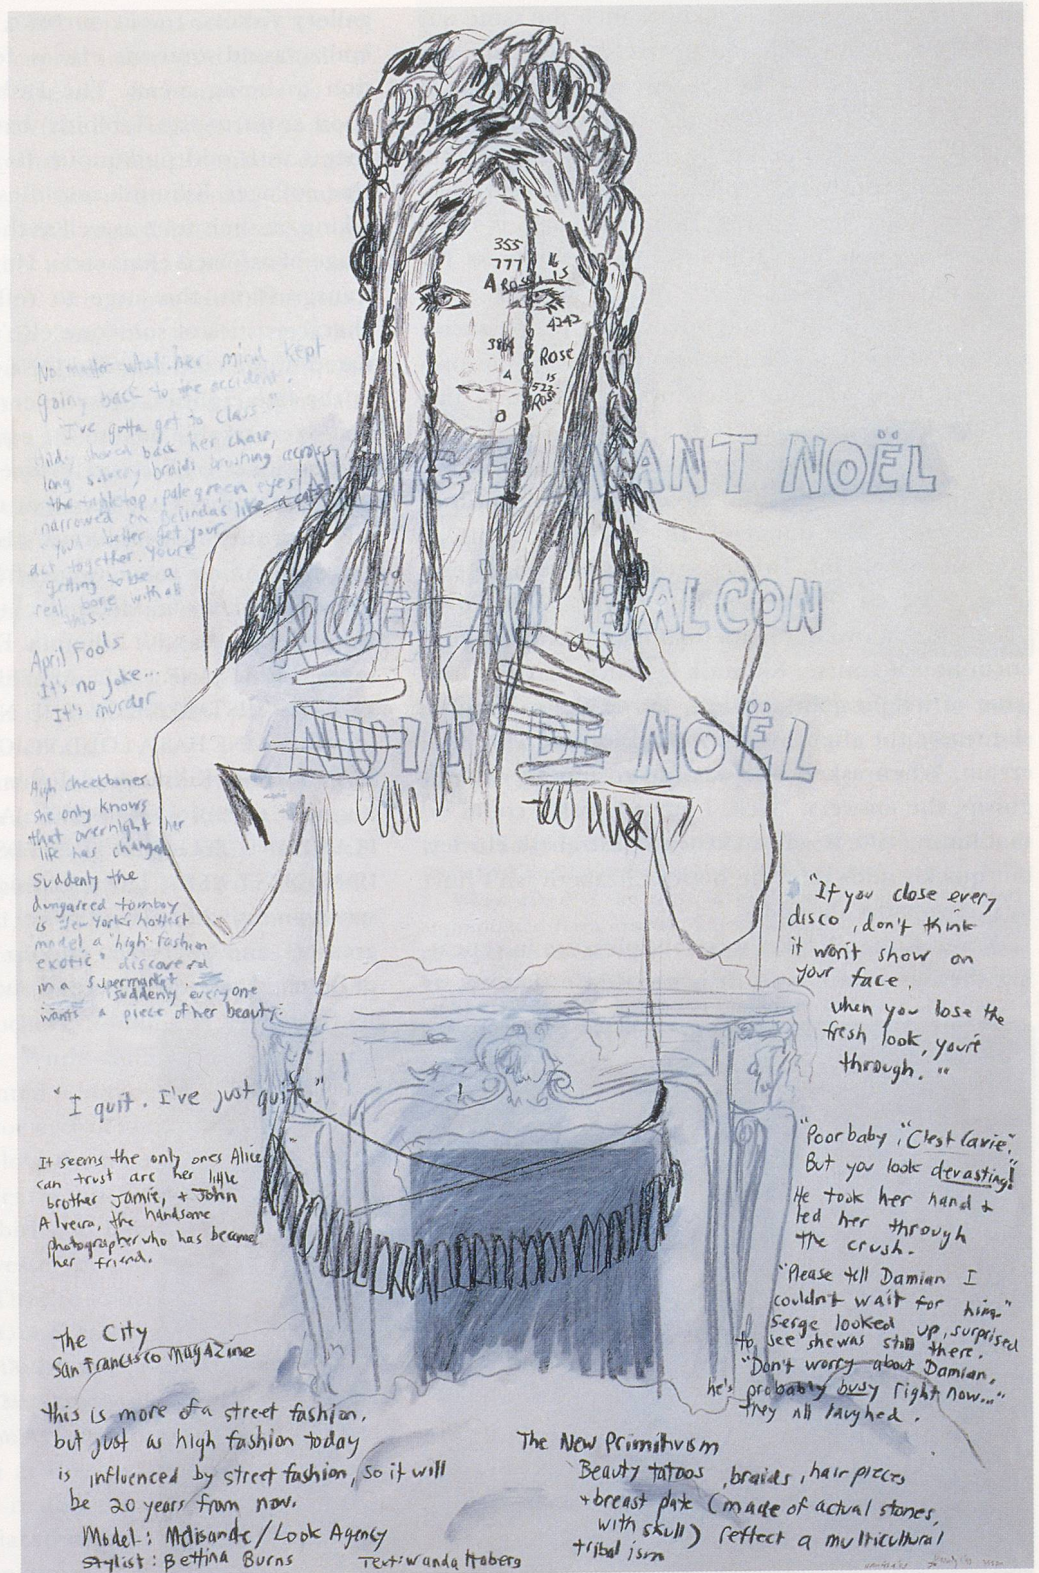 355
777
16
A Rose is
a
4242
Rose
4
is
522
Rose
a
NEIGE AVANT NOËL
NOËL AU BALCON
au
NUIT DE NOËL
No matter what her mind kept
going back to the accident.
"I've gotta get to class."
Hildy shoved back her chair,
long silvery braids brushing across
the tabletop, pale green eyes
narrowed on Belinda's like a cat's
"You better get your
act together. You're
getting to be a
real bore with all
this."
April Fools
It's no joke...
It's murder
High cheekbones
she only knows
that overnight her
life has changed
Suddenly the
dungareed tomboy
is New York's hottest
model a "high fashion
exotic" discovered
in a supermarket.
Suddenly everyone
wants a piece of her beauty.
"I quit. I've just quit."
It seems the only ones Alice
can trust are her little
brother Jamie, + John
Alveira, the handsome
photographer who has become
her friend.
The City
San Francisco Magazine
this is more of a street fashion,
but just as high fashion today
is influenced by street fashion, so it will
be 20 years from now.
Model: Melisande / Look Agency
Stylist: Bettina Burns
Text: Wanda Hoberg
"If you close every
disco, don't think
it won't show on
your face.
when you lose the
fresh look, you're
through."
"Poor baby, "C'est la vie".
But you look devasting!"
He took her hand +
led her through
the crush.
"Please tell Damian I
couldn't wait for him"
Serge looked up, surprised
to see she was still there.
"Don't worry about Damian,
he's probably busy right now..."
they all laughed.
The New Primitivism
Beauty tatoos, braids, hair pieces
+ breast plate (made of actual stones,
with skull) reflect a multicultural
tribalism